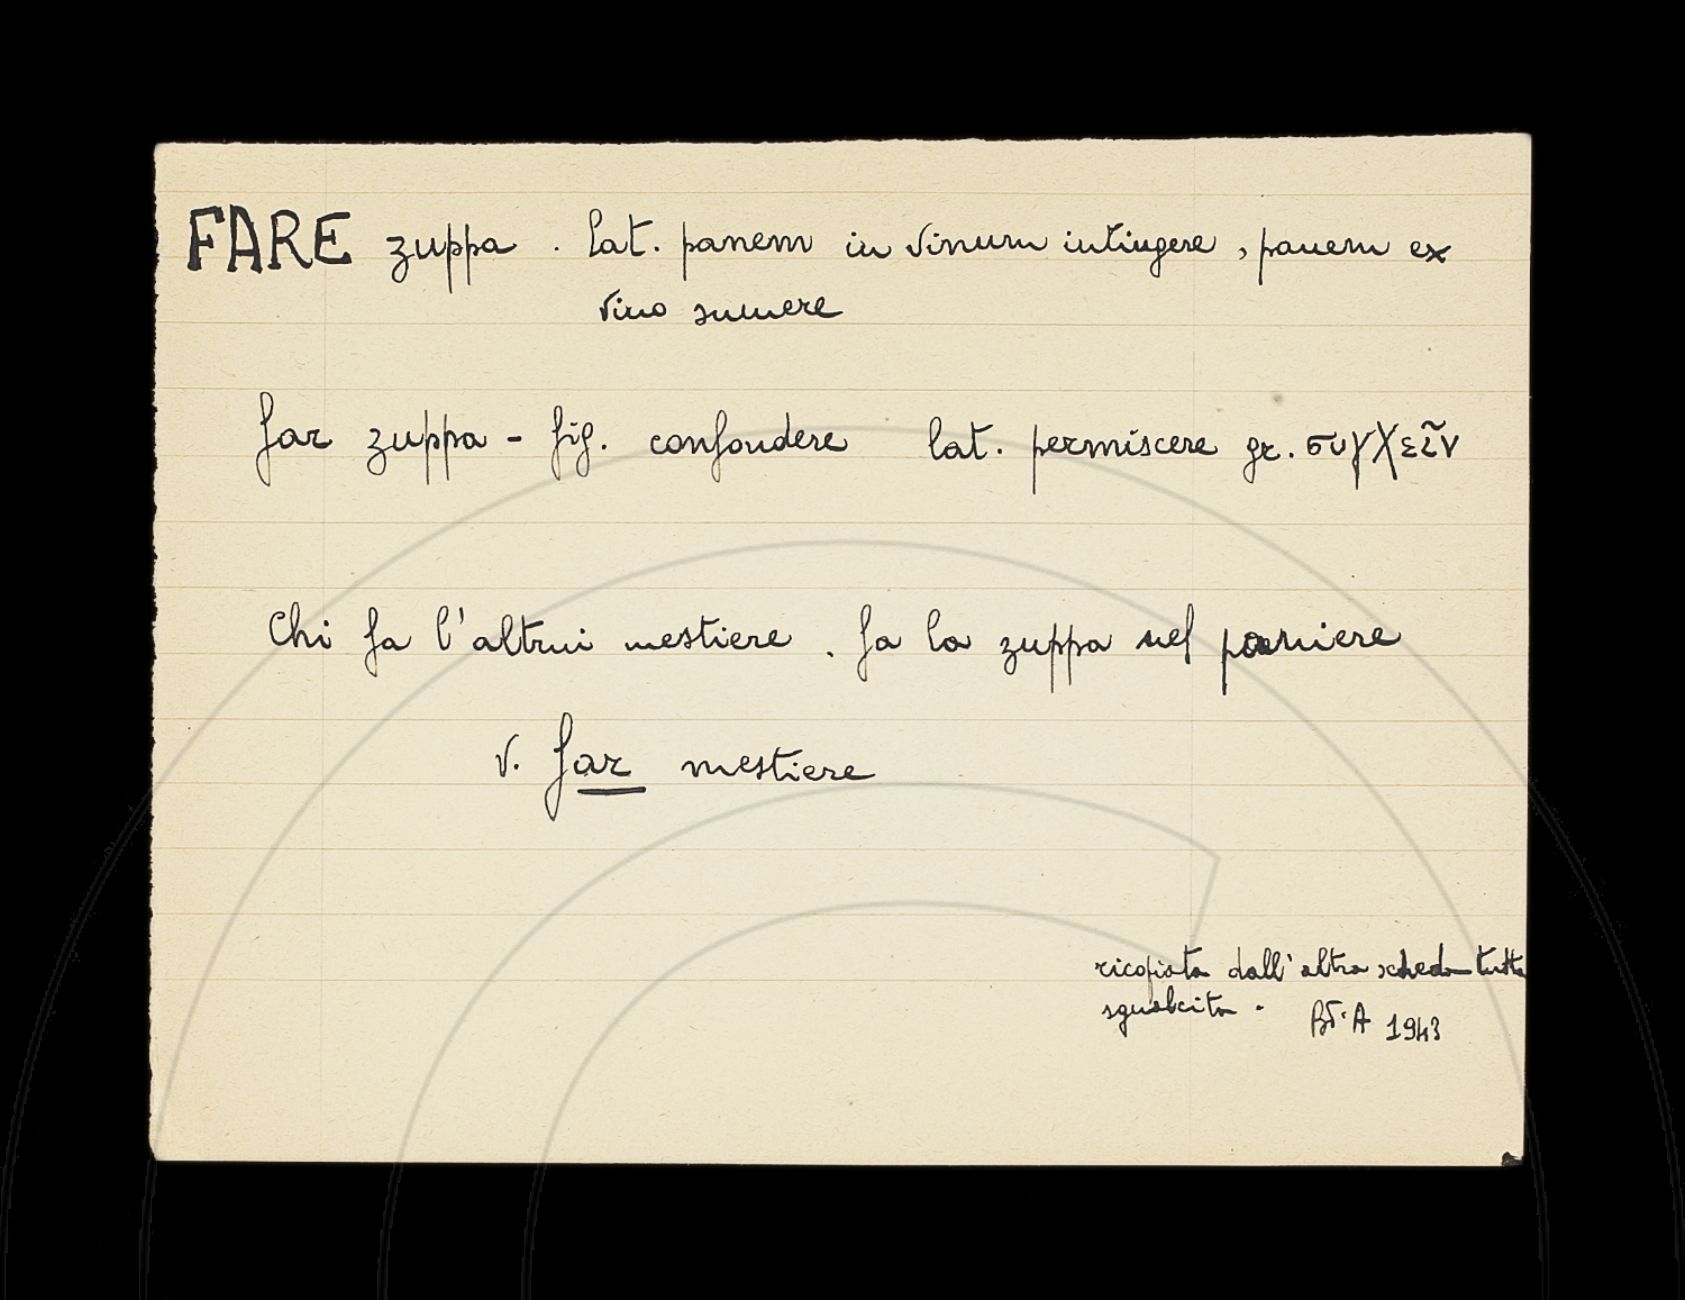 FARE zuppa . lat. panem in vinum intingere, panem ex
vino sumere
far zuppa - fig. confondere lat. permiscere gr. συγχεῖν
Chi fa l'altrui mestiere . fa la zuppa nel paniere
v. far mestiere
ricopiata dall'altra scheda tutta
sgualcita.
1943